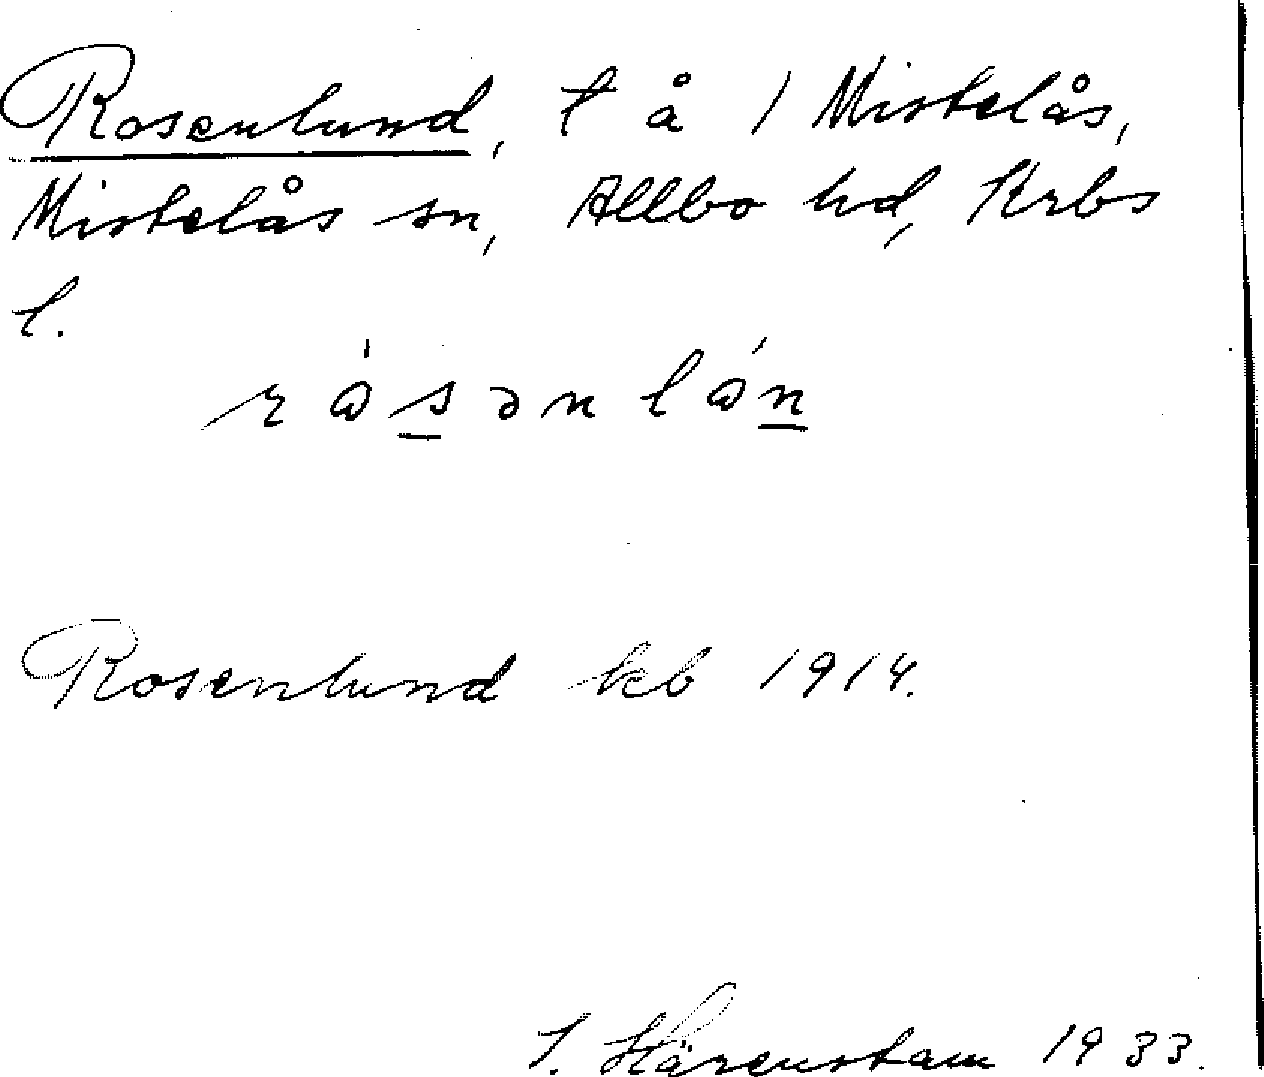 Rosenlund, t å 1 Mistelås,
Mistelås sn, Allbo hd, Krbs
l.
Rosenlund kb 1914.
Härenstam 1933.